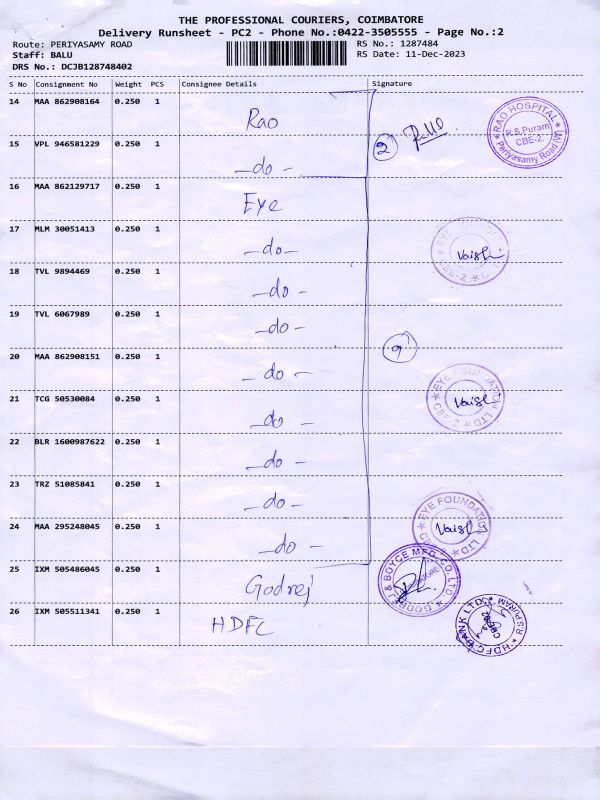 THE PROFESSIONAL COURIERS, COIMBATORE
Delivery Runsheet - PC2 - Phone No.:0422-3505555 - Page No.:2
Route: PERIYASAMY ROAD RS No.: 1287484
Staff: BALU RS Date: 11-Dec-2023
DRS No.: DCJB128748402
S No Consignment No Weight PCS Consignee Details Signature
14 MAA 862908164 0.250 1 Rao
RAO HOSPITAL R.S.Puram CBE-2. Periyasamy Road (W)
15 VPL 946581229 0.250 1 -do- 2
16 MAA 862129717 0.250 1 Eye
17 MLM 30051413 0.250 1 -do-
EYE FOUNDATION CBE-2 Vaish
18 TVL 9894469 0.250 1 -do-
19 TVL 6067989 0.250 1 -do-
20 MAA 862908151 0.250 1 -do- 9
21 TCG 50530084 0.250 1 -do-
EYE FOUNDATION LTD CBE-2 Vaish
22 BLR 1600987622 0.250 1 -do-
23 TRZ 51085841 0.250 1 -do-
24 MAA 295248045 0.250 1 -do-
EYE FOUNDATION LTD Vaish
25 IXM 505486045 0.250 1 Godrej
GODREJ & BOYCE MFG.CO.LTD.
26 IXM 505511341 0.250 1 HDFC
HDFC BANK LTD. RSPURAM